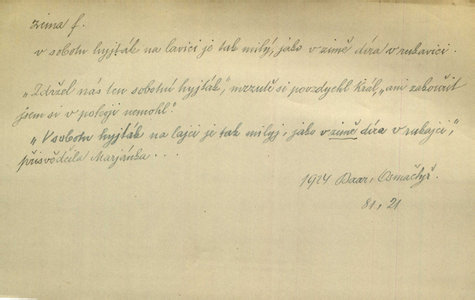 zima f.
v sobotu hyjták na lavici je tak milý, jako v zimě díra v rukavici.
„Zdržel nás ten sobotní hyjták,“ mrzutě si povzdychl Král, „ani zakouřit
jsem si v pokoji nemohl“
„V sobotu hyjták na lajci je tak milyj, jako v zimě díra v rukajci,“
přisvědčila Marjánka . . .
1924 Baar, Osmačtyř.
81, 21